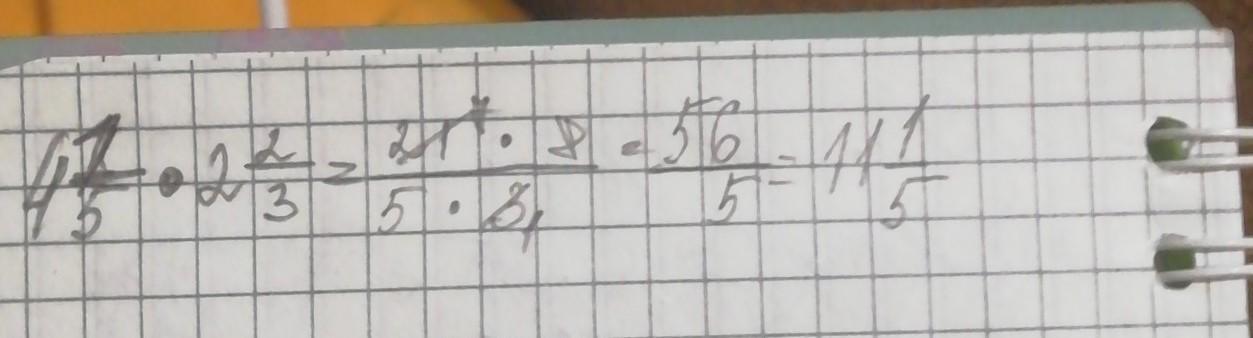 4 1/5 · 2 2/3 = 21 7 · 8 / 5 · 3 1 = 56/5 = 11 1/5